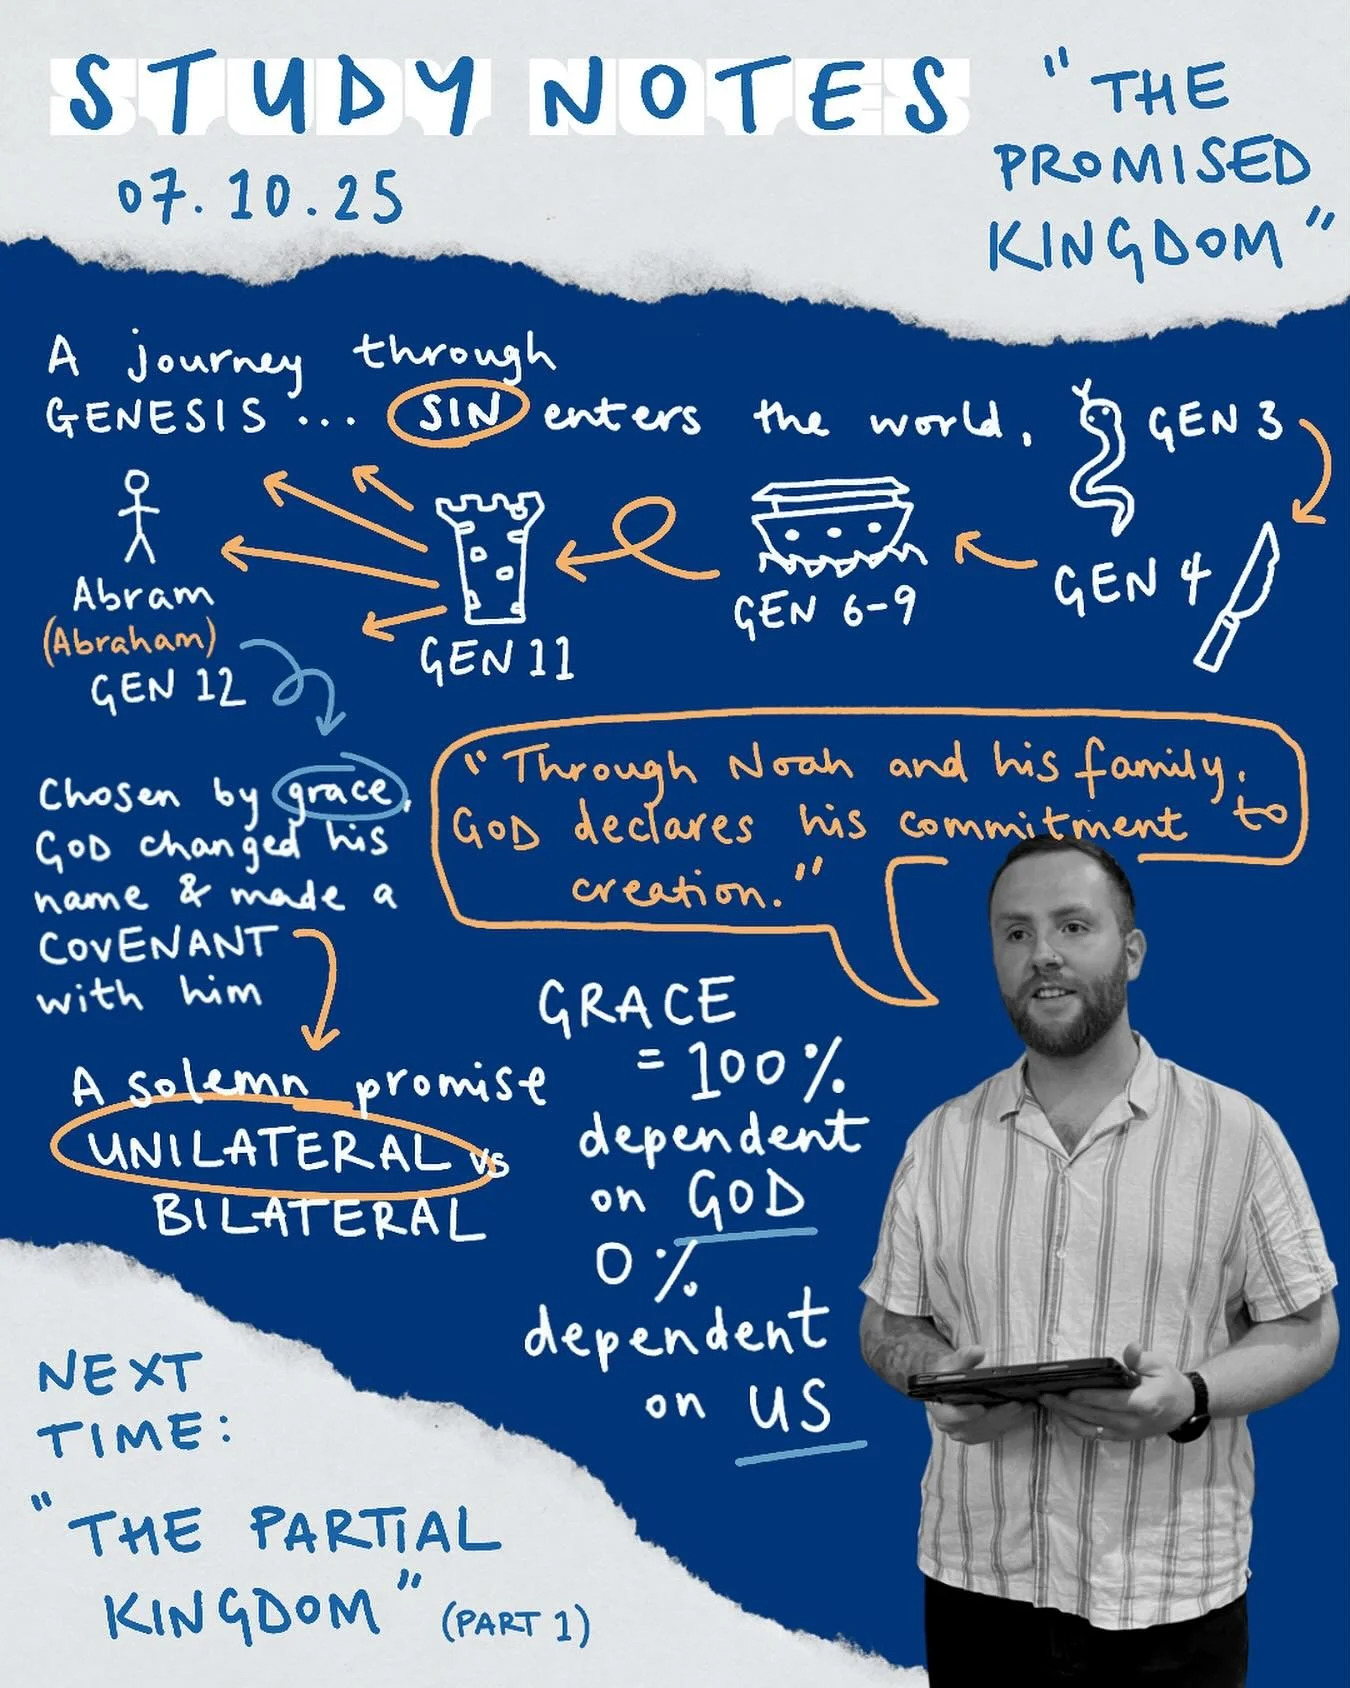 STUDY NOTES
07.10.25
"THE
PROMISED
KINGDOM"
A journey through
GENESIS... SIN enters the world.
GEN 3
GEN 4
GEN 6-9
GEN 11
Abram
(Abraham)
GEN 12
Chosen by grace,
GOD changed his
name & made a
COVENANT
with him
A solemn promise
UNILATERAL vs
BILATERAL
"Through Noah and his family,
GOD declares his commitment to
creation."
GRACE
= 100%
dependent
on GOD
0%
dependent
on US
NEXT
TIME:
"THE PARTIAL
KINGDOM" (PART 1)